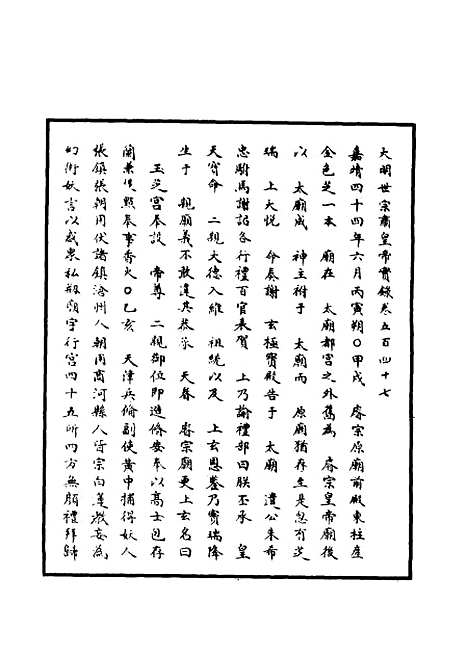 大明世宗肅皇帝實錄卷五百四十七
嘉靖四十四年六月丙寅朔○甲戌 睿宗原廟前殿東柱產
金色芝一本 廟在 太廟都宮之外舊為 睿宗皇帝廟後
以 太廟成 神主祔于 太廟而 原廟猶存至是忽有芝
瑞 上大悅 命奏謝 玄極寶殿告于 太廟 遣公朱希
忠駙馬謝詔各行禮百官表賀 上乃諭禮部曰朕丕承 皇
天寶命 二親大德入繼 祖統以及 上玄恩鑒乃寶瑞降
生于 親廟義不敢違其恭承 天眷 睿宗廟更上玄名曰
玉芝宮奉設 帝尊 二親御位即進脩安奉以高士包存
蘭兼後點奉事香火○乙亥 天津兵備副使黃中捕得妖人
張鎮張朝用伏誅鎮滄州人朝用商河縣人皆宗白蓮教妄為
幻術妖言以惑衆私刱廟宇行宮四十五所四方無賴禮拜歸